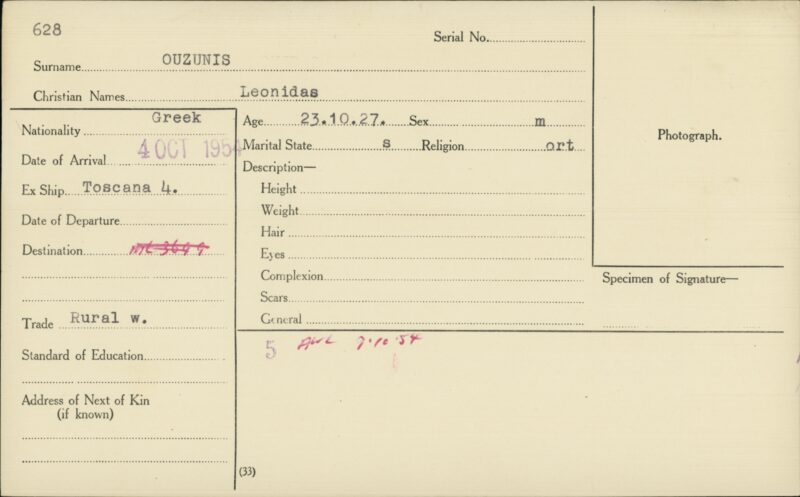 628
Serial No.
Surname OUZUNIS
Christian Names Leonidas
Nationality Greek
Date of Arrival 4 OCT 1954
Ex Ship Toscana 4.
Date of Departure
Destination
Trade Rural w.
Standard of Education
Address of Next of Kin
(if known)
Age 23.10.27. Sex m
Marital State s Religion ort
Description—
Height
Weight
Hair
Eyes
Complexion
Scars
General
5 AWL 7·10·54
(33)
Photograph.
Specimen of Signature—